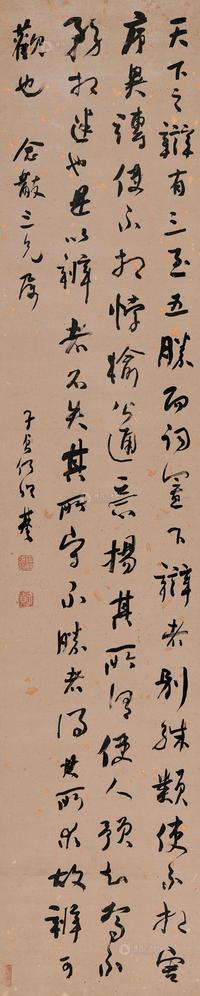 天下之辯有三至五勝而詞置下辯者別殊類使不相害
序異端使不相悖輸公通意揚其所謂使人預知焉不
務相迷也是以辯者不失其所守不勝者得其所求故辯可
觀也 三兄屬 子貞何紹基